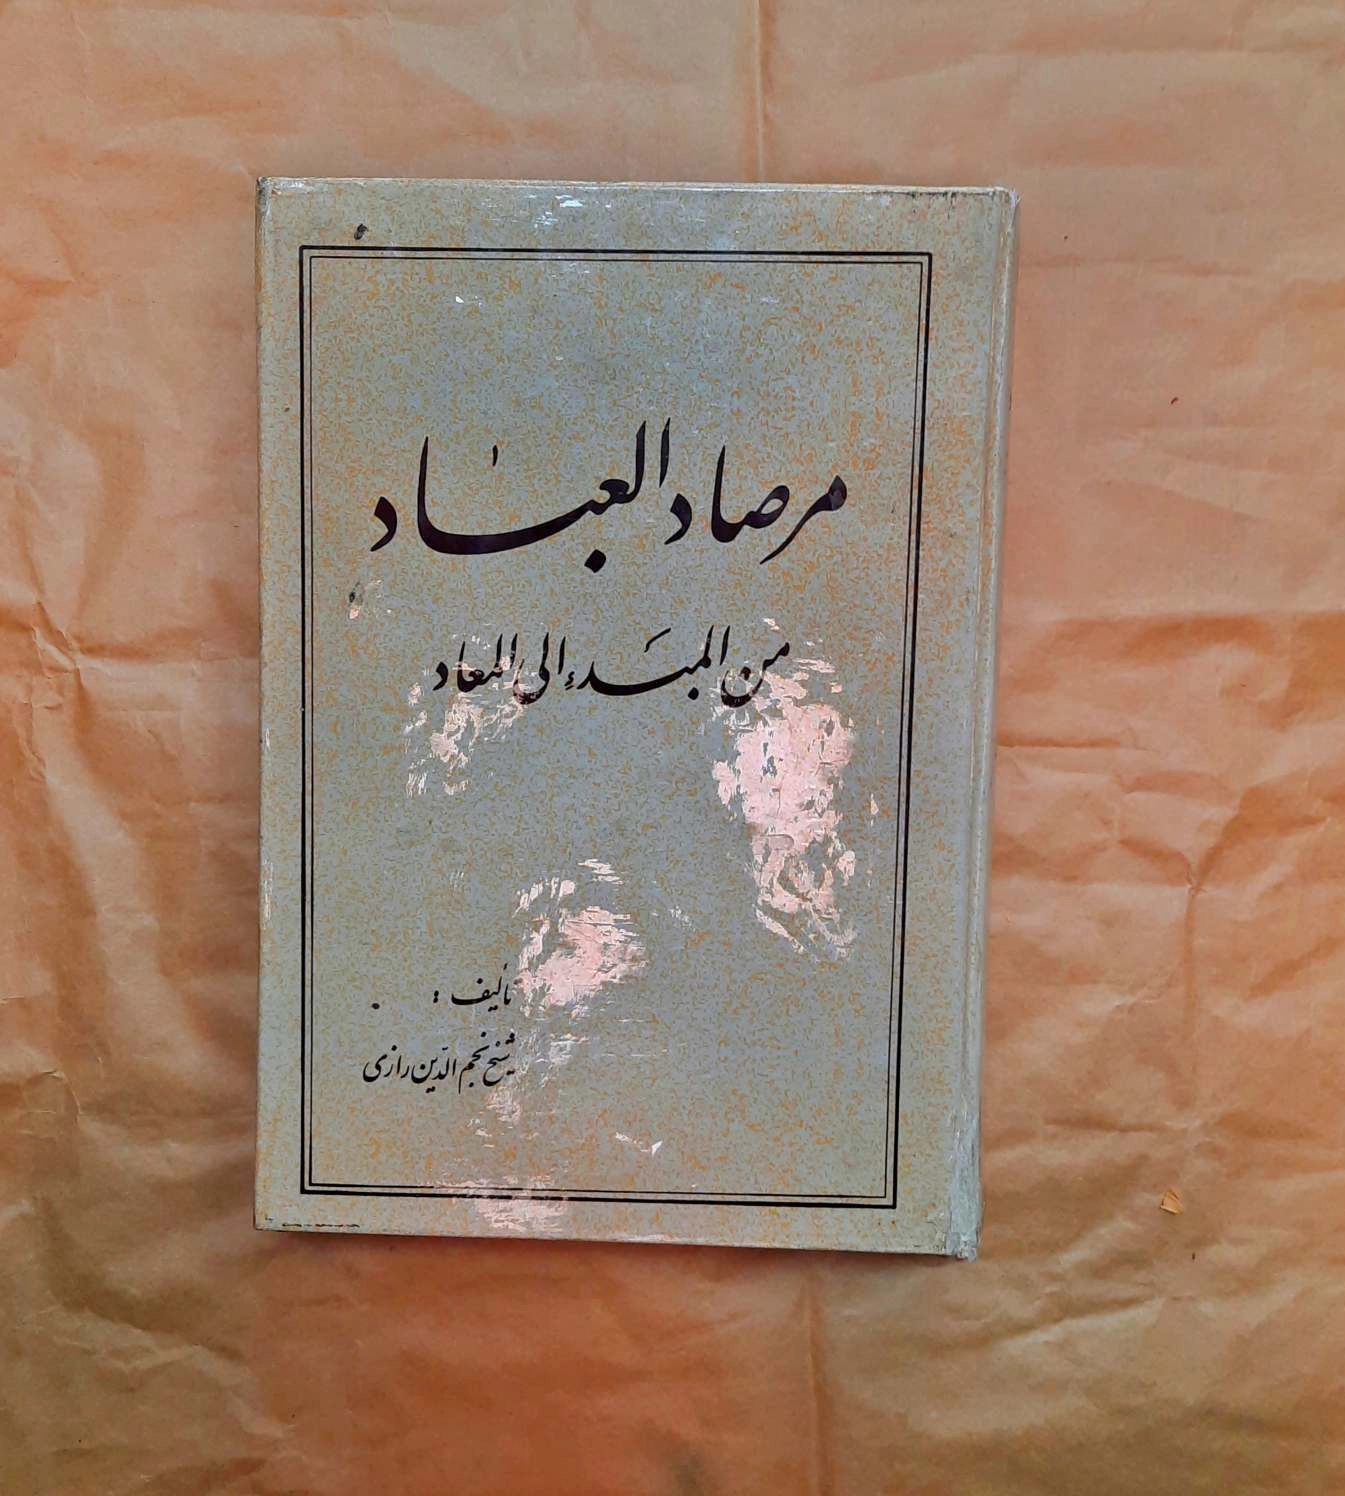 مرصاد العباد
من المبدء الی المعاد
تألیف :
شیخ نجم الدّین رازی